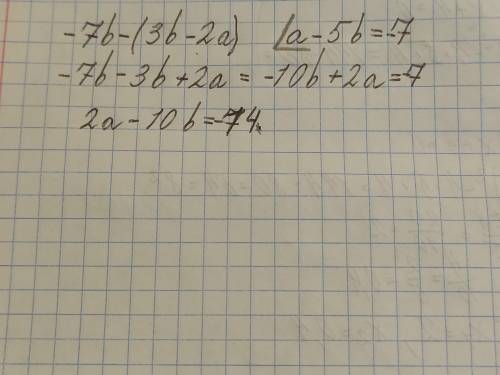 -7b-(3b-2a) a-5b=-7
-7b-3b+2a = -10b+2a=-7
2a-10b=-14.